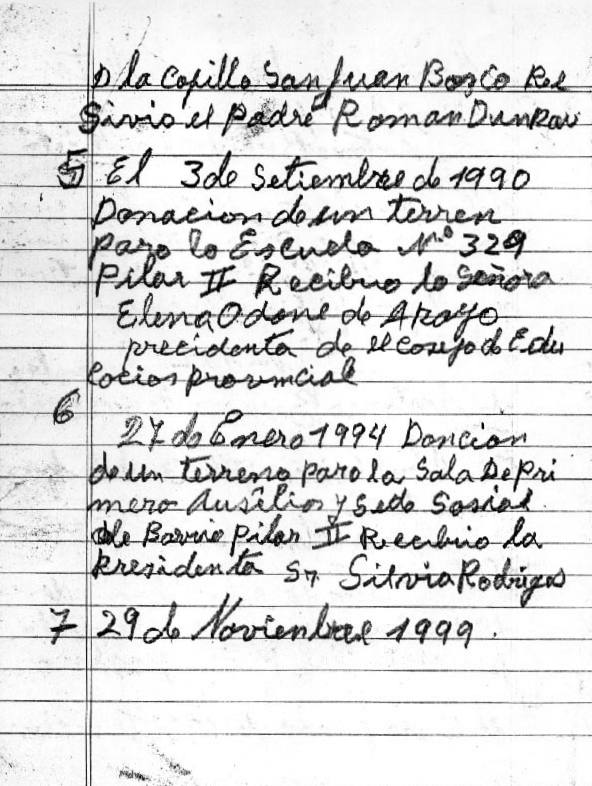 D la Capilla San Juan Bosco Rel
Sivio el Padre Roman Dunkau
5 El 3 de Setiembre de 1990
Donacion de un terren
para la Escuela N.º 329
Pilar II Recibio la Señora
Elena Odone de Arayo
precidenta de el cosejo de Edu
cacion provincial
6
27 de Enero 1994 Doncion
de un terreno para la Sala De Pri
mero Ausilios y Sede Sosial
de Barrio Pilar II Recibio la
Presidenta Sra Silvia Rodriges
7 29 de Noviembre 1999.